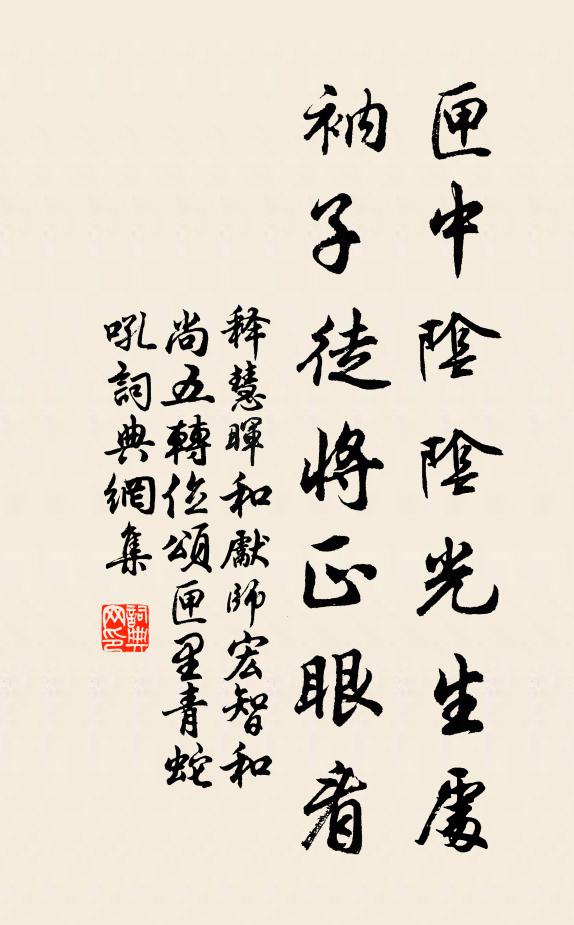 匣中陰陰光生處
衲子徒將正眼看
釋慧暉和獻師宏智和
尚五轉位頌匣里青蛇
吼詞典網集
詞典
网印